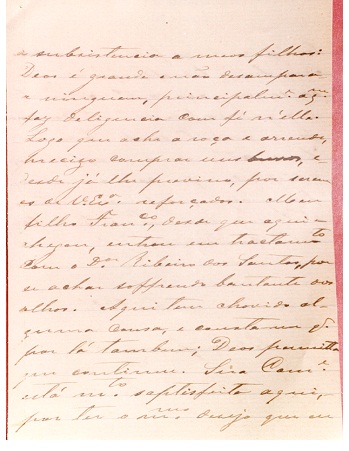 a subsistencia a meus filhos:
Deos é grande e não desampara
a ninguem, principalm.te a q.m
faz deligencia com fé n'elle.
Logo que ache a roça e arrende,
preciso comprar uns e
desde já lhe previno, por serem
os de V.Ex.a reforçados. Meu
filho Fran.co, desde que aqui
chegou, entrou em tractam.to
com o D.or Ribeiro dos Santos, por
se achar soffrendo bastante dos
olhos. Aqui tem chovido al
guma cousa, e consta-me q.
por lá tambem; Deos permitta
que continue. Sira
está m.to saptisfeita aqui,
por ter o m.mo desejo que eu